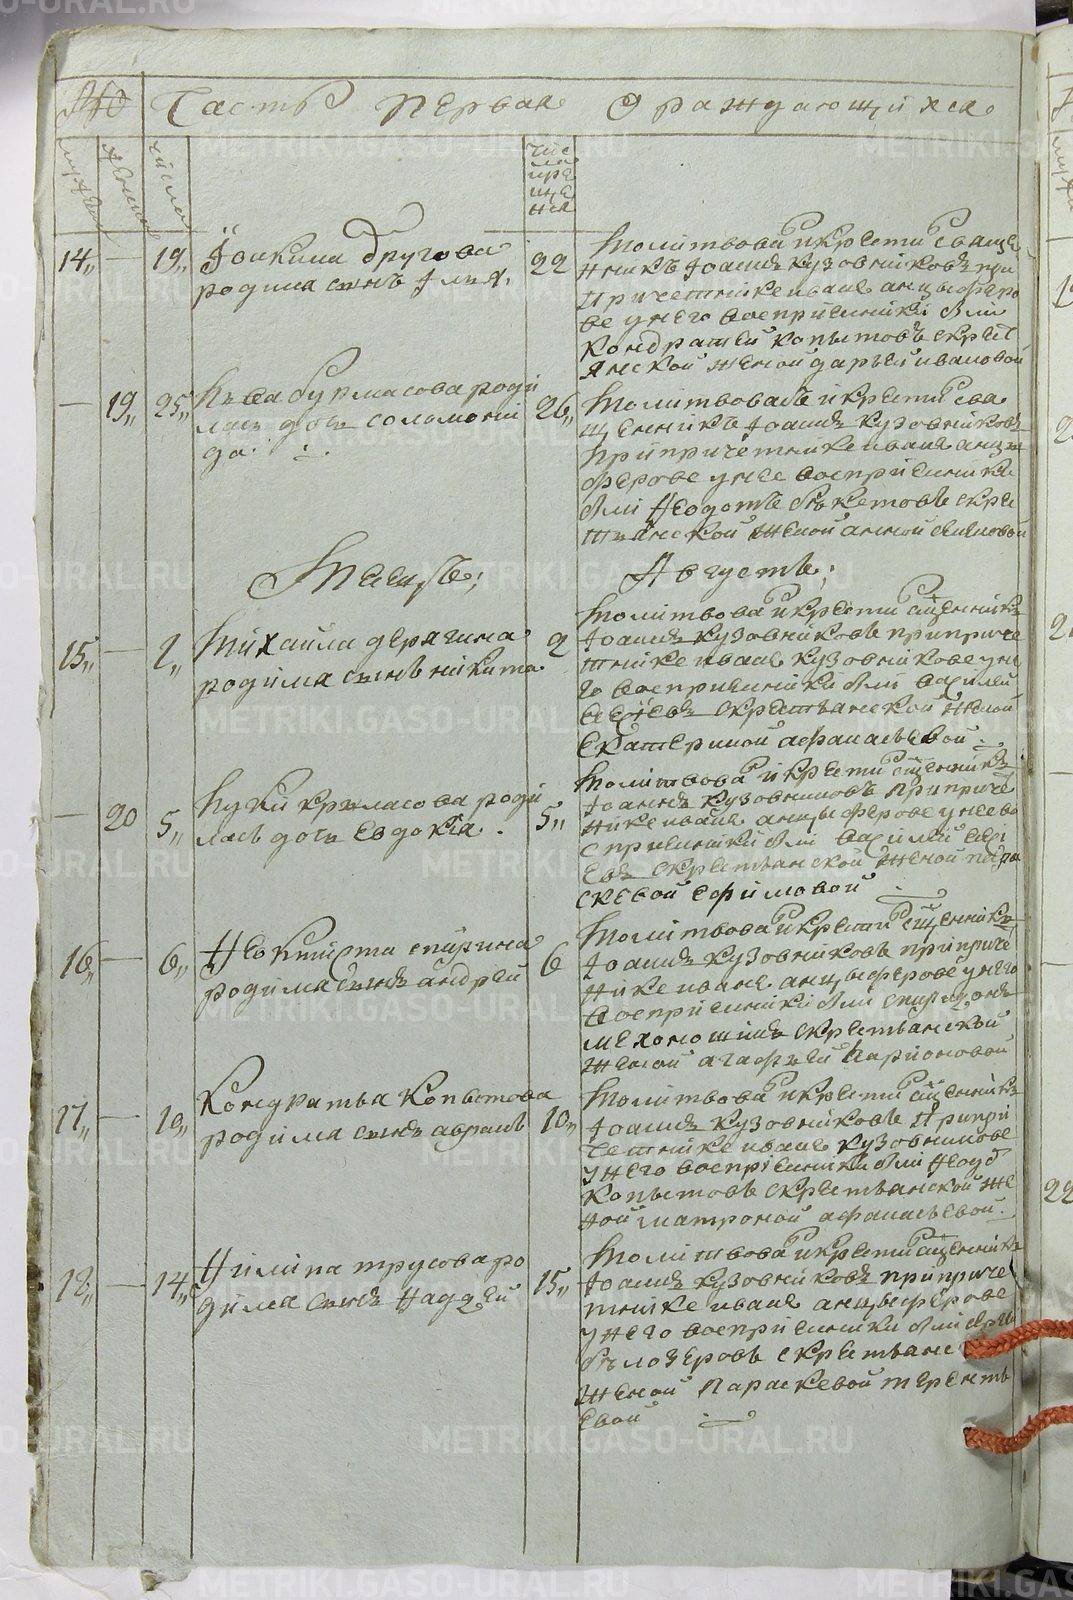 Часть первая О раждающихся
мужеск
женска
числа
чис
ла кре
ще
ния
14 — 19 Іоакима Другова
родился сынъ Илья
22
молитвовал и крестил священ
никъ Іоаннъ Кузовниковъ при
причетнике иване анцыферо
ве у него восприемники были
Кондратей Копытовъ с крест
янской женой дарьей ивановой
— 19 25 Бурмасова роди
лась дочь соломони
да
26
молитвовалъ и крестил свя
щенникъ Іоаннъ Кузовниковъ
при причетнике иване анцы
ферове у нее восприемники
были Федотъ Бекетовъ с кре
стьянской женой анной
Месяцъ Августъ
15 — 1 Михаила дерягина
родился сынъ никита
2
молитвовал и крестил священникъ
Іоаннъ Кузовниковъ при приче
тнике иване Кузовникове у не
го восприемники были василей
с крестьянской женой
Екатериной афанасьевой
— 20 5 Луки Бурмасова роди
лась дочь Евдокія
5
молитвовал и крестил священникъ
Іоаннъ Кузовниковъ при приче
нике иване анцыферове у нее во
сприемники были василей
с крестьянской женой пара
скевой ефимовой
16 — 6 Феоктиста спирина
родился сынъ андрей
6
молитвовал и крестил священникъ
Іоаннъ Кузовниковъ при приче
нике иване анцыферове у него
восприемники были спиридонъ
мехоношинъ с крестьянской
женой агафьей Ларионовой
17 — 10 Кондратья Копытова
родился сынъ авраамъ
10
молитвовал и крестил священникъ
Іоаннъ Кузовниковъ при при
четнике иване Кузовникове
у него восприемники были
Копытовъ с крестьянской же
ной матроной афанасьевой
18 — 14 Филипа трусова ро
дился сынъ Фаддей
15
молитвовал и крестил священникъ
Іоаннъ Кузовниковъ при приче
тнике иване анцыферове
у него восприемники были
Белозеровъ с крестьянс
женой Параскевой терентъ
евой
METRIKI.GASO-URAL.RU